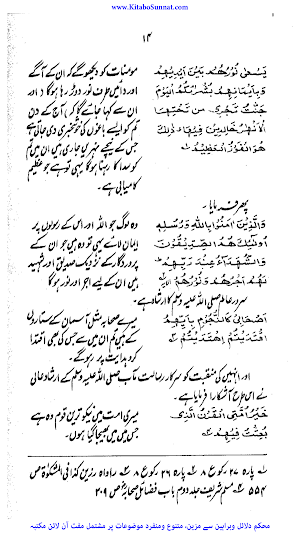 www.KitaboSunnat.com
۱۴
مومنات کو دیکھو گے کہ ان کے آگے
اور داہنی طرف نور دوڑ رہا ہوگا (اور
ان سے کہا جائے گا کہ) آج کے دن
تم کو ایسے باغوں کی خوشخبری دی جاتی ہے
جن کے نیچے نہریں جاری ہیں ان میں تم
کو سدا کا رہنا ہوگا یہی تو ہے جو عظیم
کامیابی ہے۔
يَسْعٰى نُوْرُهُمْ بَيْنَ اَيْدِيْهِمْ
وَبِاَيْمَانِهِمْ بُشْرٰىكُمُ الْيَوْمَ
جَنّٰتٌ تَجْرِىْ مِنْ تَحْتِهَا
الْاَنْهٰرُ خٰلِدِيْنَ فِيْهَا ذٰلِكَ
هُوَ الْفَوْزُ الْعَظِيْمُ
پھر فرمایا۔
وہ لوگ جو اللہ اور اس کے رسولوں پر
ایمان لائے یہی تو وہ ہیں جو ان کے
پروردگار کے نزدیک صدیق اور شہید
ہیں ان کے لیے اجر اور نور ہوگا
وَالَّذِيْنَ اٰمَنُوْا بِاللّٰهِ وَرُسُلِهٖ
اُولٰٓئِكَ هُمُ الصِّدِّيْقُوْنَ
وَالشُّهَدَآءُ عِنْدَ رَبِّهِمْ
لَهُمْ اَجْرُهُمْ وَنُوْرُهُمْ
سرور عالم صلی اللہ علیہ وسلم کا ارشاد ہے۔
میرے صحابہ مثل آسمان کے ستاروں
کے ہیں تم ان میں سے جس کی بھی اقتدا
کرو ہدایت پر رہو گے۔
اَصْحَابِىْ كَالنُّجُوْمِ بِاَيِّهِمْ
اقْتَدَيْتُمْ اِهْتَدَيْتُمْ
اور انہیں کی منقبت کو سرکار رسالت مآب صلی اللہ علیہ وسلم کے ارشاد عالی
نے اس طرح آشکارا فرمایا ہے۔
میری امت میں نیکو ترین قوم وہ ہے
جس میں میں بھیجا گیا ہوں۔
خَيْرُ اُمَّتِى الْقَرْنُ الَّذِىْ
بُعِثْتُ فِيْهِمْ
پارہ ۲۷ رکوع ۱۸ پارہ ۲۷ رکوع ۱۸ رواہ رزین کذا فی المشکوٰۃ ص
۵۵۴ مسلم شریف جلد دوم باب فضائل صحابہ ص ۳۰۹
محکم دلائل وبراہین سے مزین، متنوع ومنفرد موضوعات پر مشتمل مفت آن لائن مکتبہ